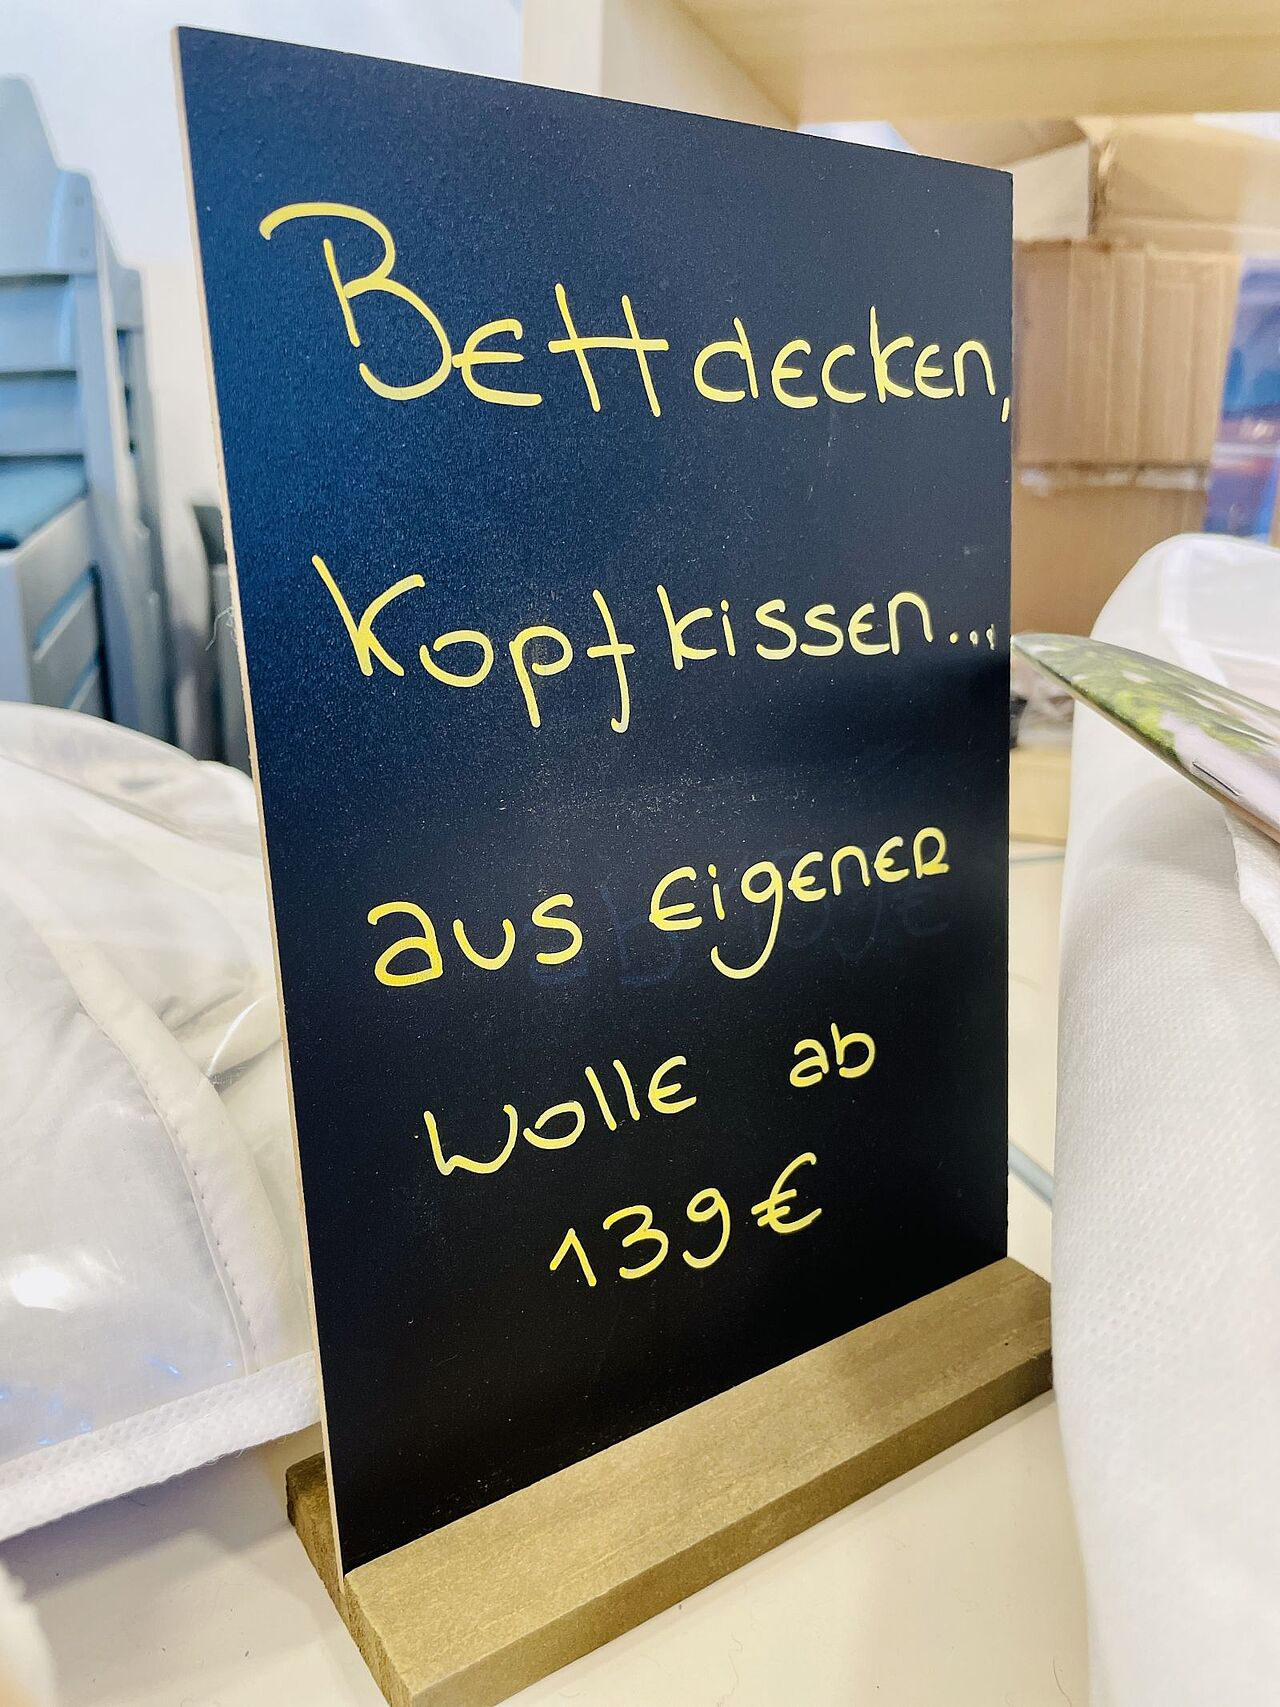 Bettdecken,
Kopfkissen...
aus eigener
Wolle ab
139€